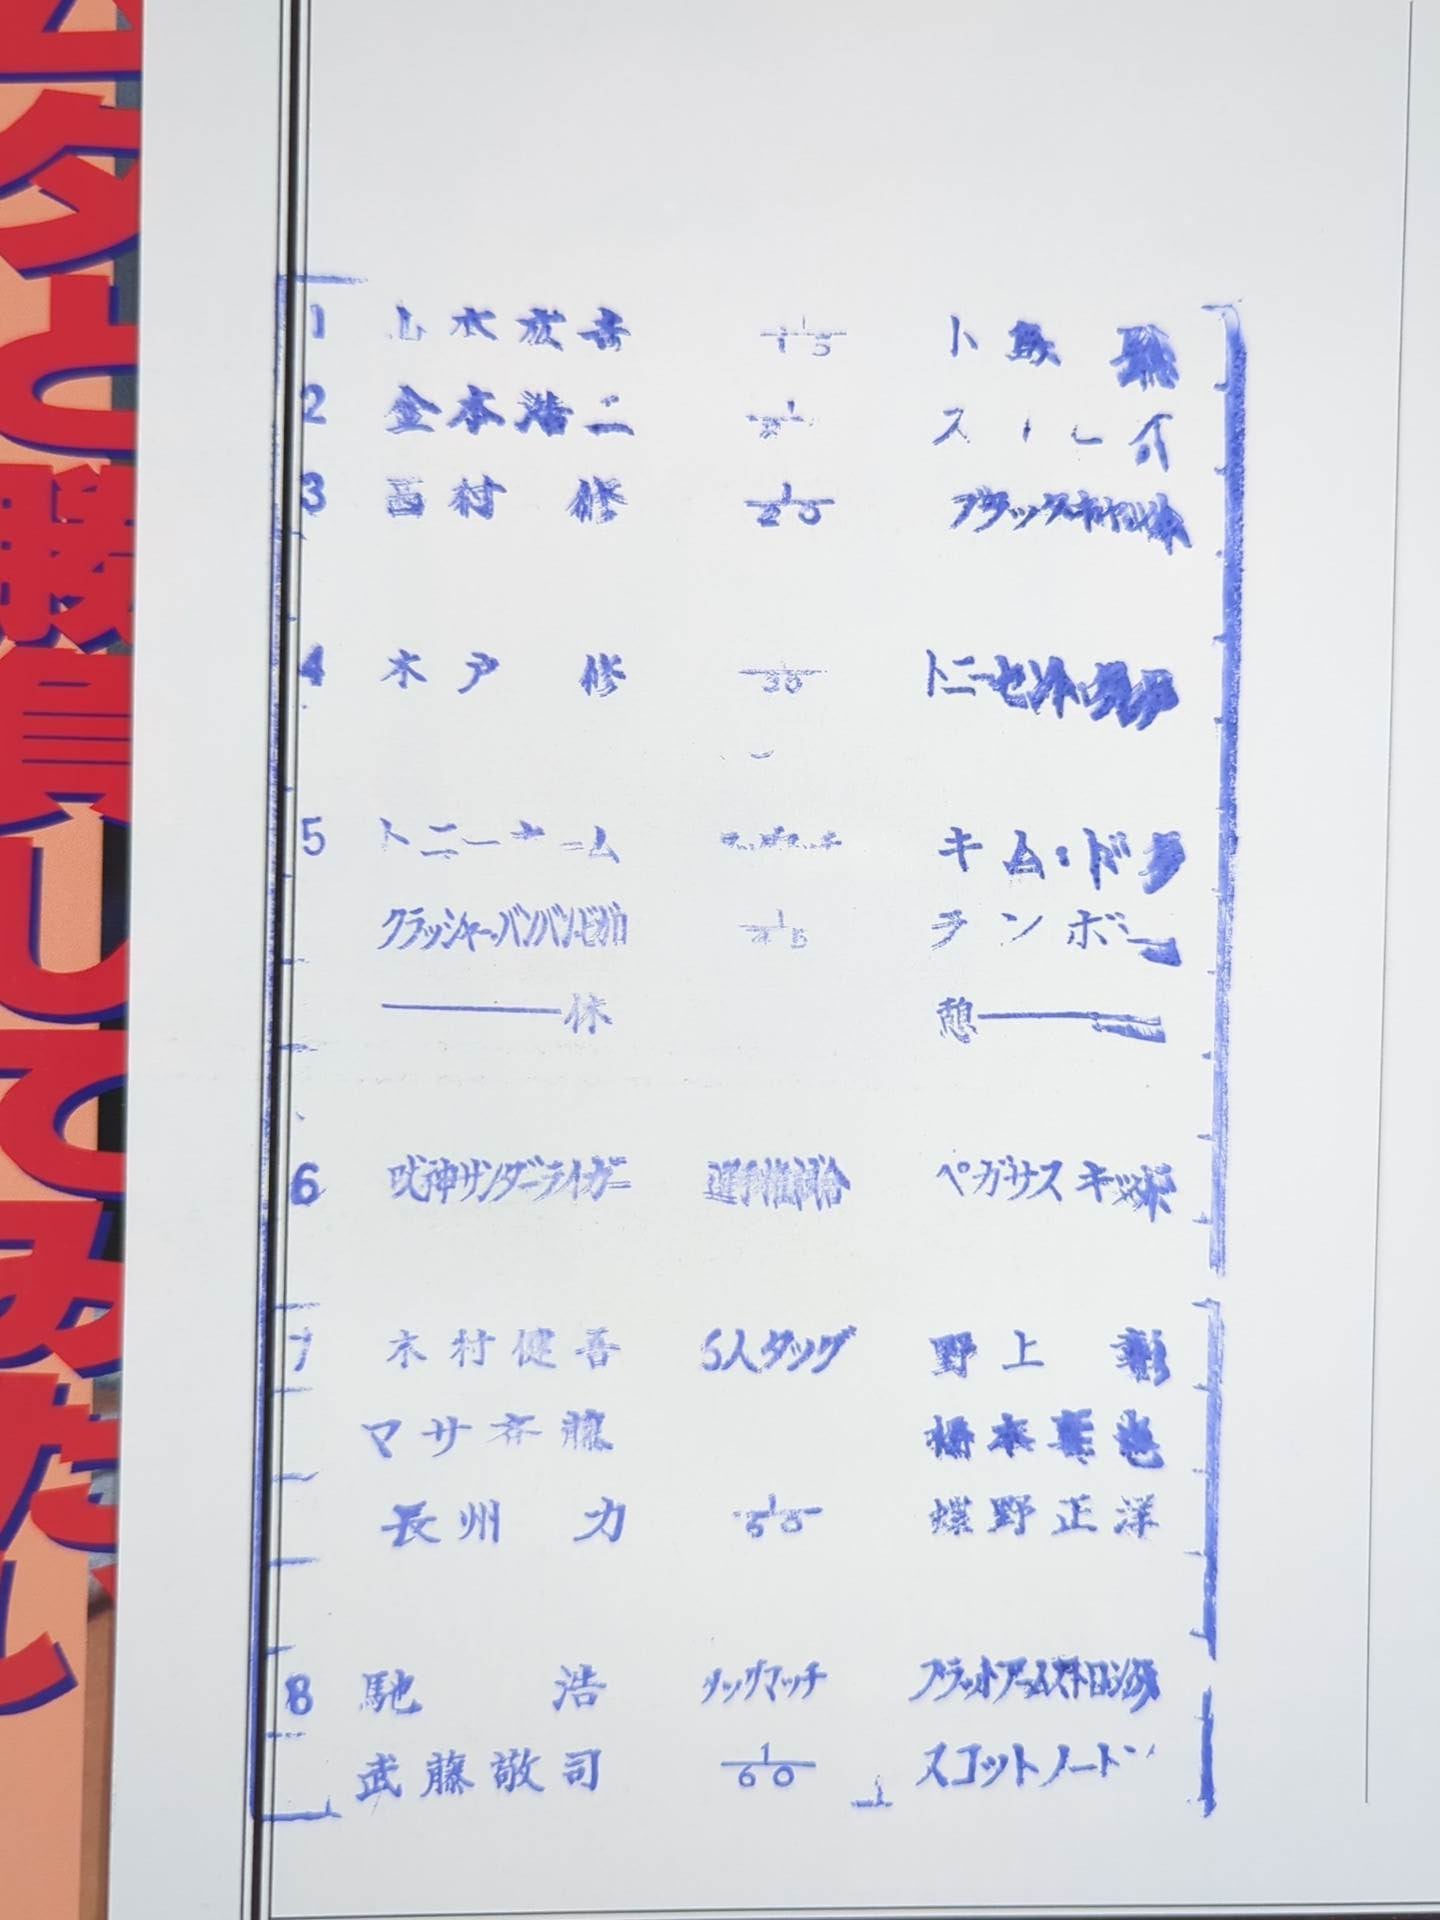 1 山本広吉 1/15 小原
2 金本浩二 1
3 西村 修 1/20 ブラックキャット
4 木戸 修 1/30 トニー
5 トニーホーム タッグマッチ キム・ドク
クラッシャー・バンバン・ビガロ 1/45 ランボー
休 憩
6 獣神サンダーライガー 選手権試合 ペガサスキッド
7 木村健吾 6人タッグ 野上 彰
マサ斉藤 橋本真也
長州 力 1/60 蝶野正洋
8 馳 浩 タッグマッチ ブラットアームストロング
武藤敬司 1/60 スコットノートン
タと勝負してみた